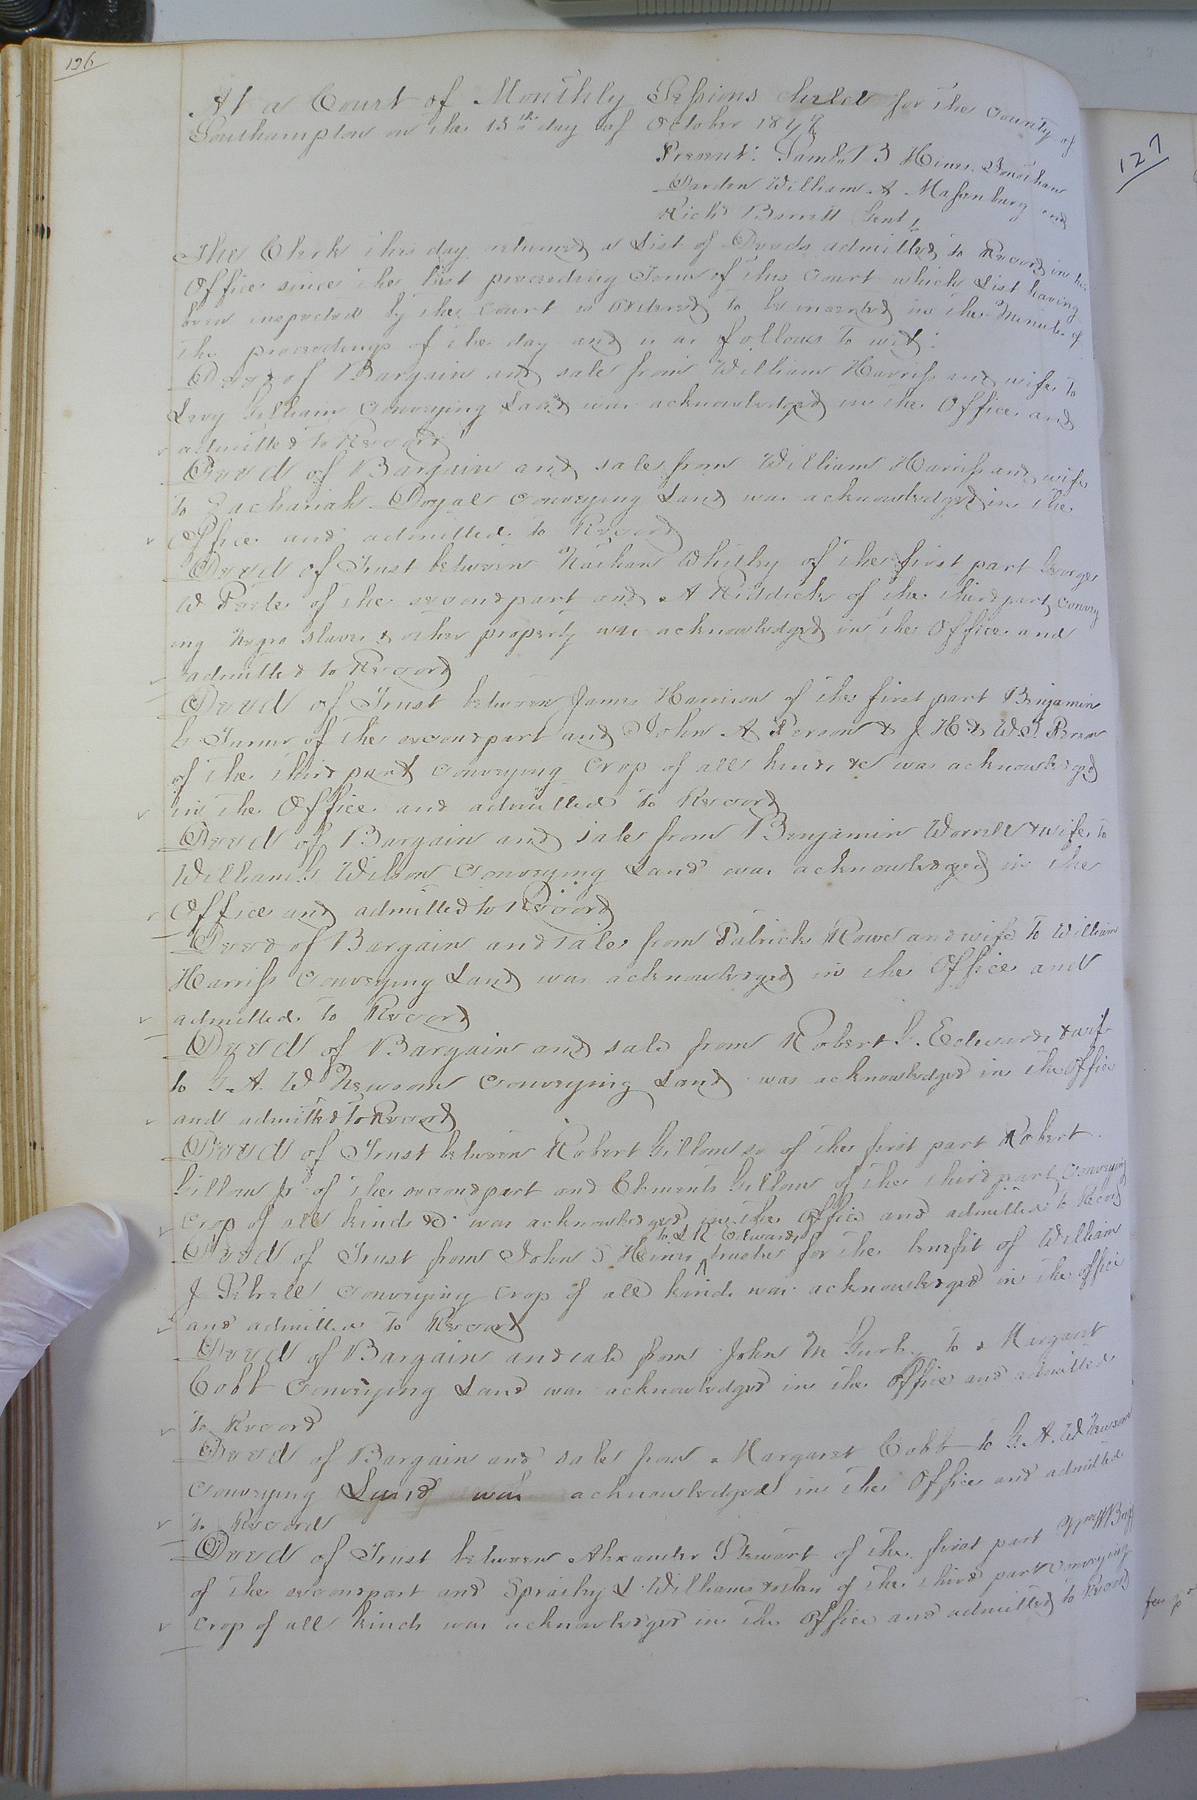 126
At a Court of Monthly Sessions held for the County of
Southampton on the 15th day of October 18
Present: Saml B Hines Jonathan
Darden William A Massenburg and
Richd Barrett Gent
The Clerk this day returned a List of Deeds admitted to Record in his
Office since the last preceeding Term of this Court which List having
been inspected by the Court is ordered to be inserted in the Minutes of
the proceedings of the day and is as follows to wit:
Deed of Bargain and sale from William Harriss and wife to
Levy Gilliam Conveying Land was acknowledged in the Office and
admitted to Record
Deed of Bargain and sale from William Harriss and wife
to Zachariah Doyal Conveying Land was acknowledged in the
Office and admitted to Record
Deed of Trust between Nathan Whitley of the first part George
W Peete of the second part and A Riddick of the third part convey
ing Negro slaves & other property was acknowledged in the Office and
admitted to Record
Deed of Trust between James Harrison of the first part Benjamin
Turner of the second part and John A Person & J H & W S Person
of the third part Conveying Crop of all kinds &c was acknowledged
in the Office and admitted to Record
Deed of Bargain and sale from Benjamin Worrell & wife to
William Wilson Conveying Land was acknowledged in the
Office and admitted to Record
Deed of Bargain and sale from Patrick Rowe and wife to William
Harriss Conveying Land was acknowledged in the Office and
admitted to Record
Deed of Bargain and sale from Robert G. Edwards & wife
to G. A. W Newsom Conveying Land was acknowledged in the Office
and admitted to Record
Deed of Trust between Robert Gillam sr of the first part Robert
Gillam Jr of the second part and Clements Gillam of the third part Conveying
Crop of all kinds &c was acknowledged in the Office and admitted to Record
to L R Edwards
Deed of Trust from John S Hines trustee for the benefit of William
J Sebrell Conveying Crop of all kinds was acknowledged in the office
and admitted to Record
Deed of Bargain and sale from John M Gurley to Margaret
Cobb Conveying Land was acknowledged in the Office and admitted
to Record
Deed of Bargain and sale from Margaret Cobb to G. A. W Newsom
Conveying Land was acknowledged in the Office and admitted
to Record
Deed of Trust between Alexander Stewart of the first part
of the second part and Spratley L Williams of the third part Conveying
Crop of all kinds was acknowledged in the Office and admitted to Record
127